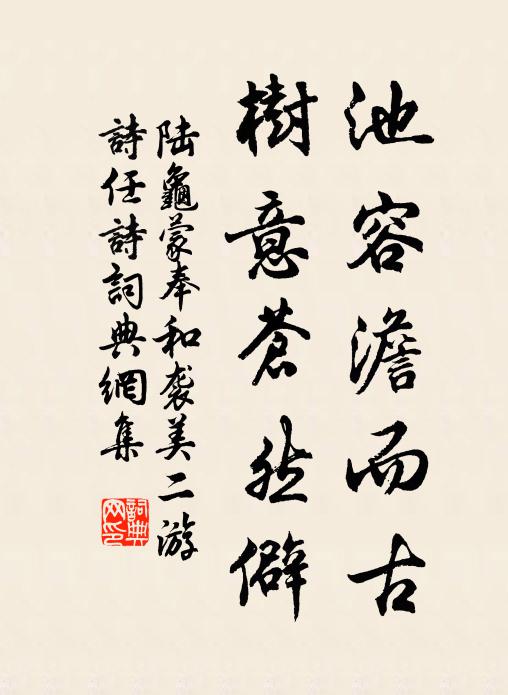 池容澹而古
樹意蒼然僻
陸龜蒙奉和袭美二游
詩任詩詞典網集
詞典
网印